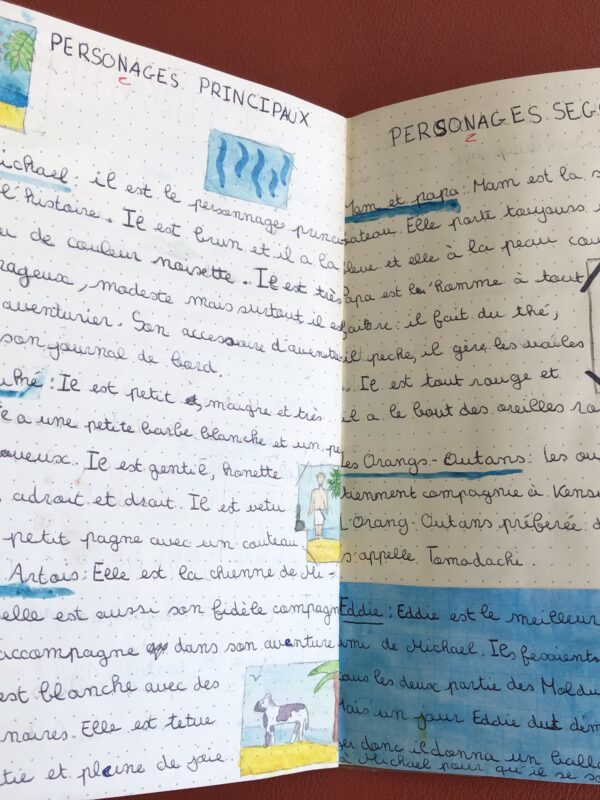 PERSONAGES PRINCIPAUX
ichael. il est le personnages princi
l'histoire. Il est brun et il a la
de couleur noisette. Il est très
rageux, modeste mais surtout il es
aventurier. Son accessoire d'aventu
son journal de bord.
: Il est petit maigre et très
a une petite barbe blanche et un pe
oueux. Il est gentil, honette
, adroit et droit. Il est vetu
petit pagne avec un couteau
Artois: Elle est la chienne de Mi-
elle est aussi son fidèle compagn
accompagne dans son aventure
est blanche avec des
noires. Elle est tetue
tie et pleine de joie.
PERSONAGES SEGO
Mam et papa: Mam est la s
ateau. Elle porte toujours
leue et elle à la peau cou
Papa est l'homme à tout
faire: il fait du thé,
il peche, il gère les voiles
. Il est tout rouge et
il a le bout des oreilles ro
es Orangs-Outans: les ou
tiennent compagnie à Kens
L'Orang-Outans préferée: d
s'appelle Tomodachi.
Eddie: Eddie est le meilleur
ami de Michael. Ils fesaients
ous les deux partie des Moldu
Mais un jour Eddie dut dém
er donc il donna un ballo
à Michael pour qu'il se so